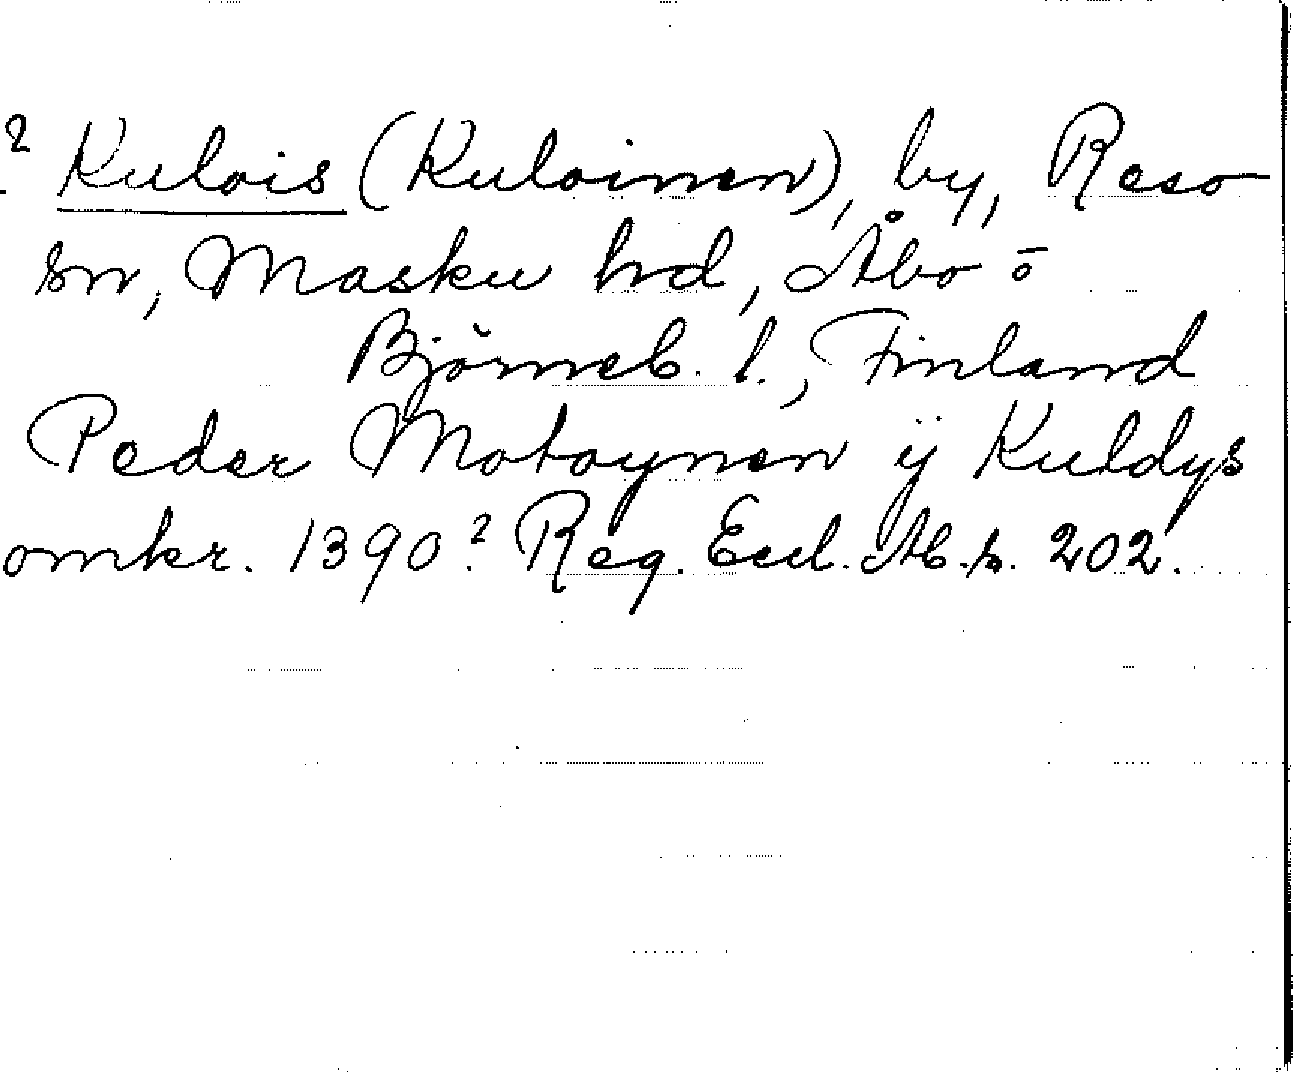 ? Kulois (Kuloinen), by, Reso
sn, Masku hd, Åbo o
Björneb. l., Finland
Peder Motoynen ij Kuldys
omkr. 1390? Reg. Eccl. Ab. s. 202.